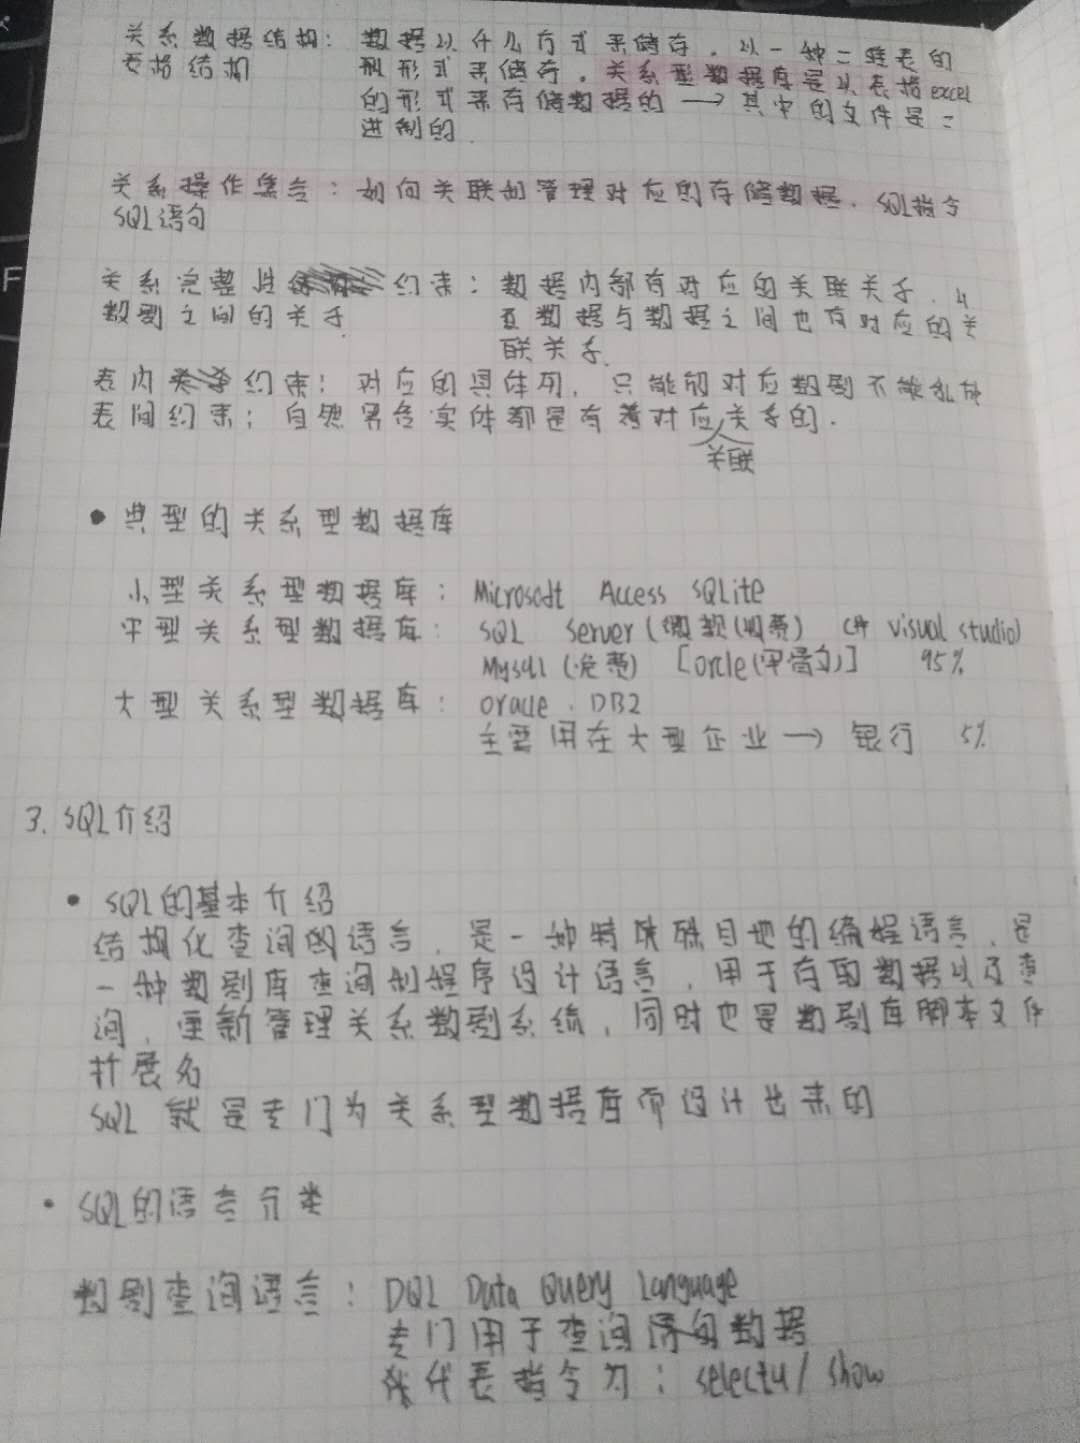 关系数据结构：数据以什么方式来储存，以一种二维表的
表格结构 形式来储存。关系型数据库是以表格excel
的形式来存储数据的 → 其中的文件是二
进制的
关系操作集合：如何关联如管理对应的存储数据，SQL指令
SQL语句
关系完整性 约束：数据内部有对应的关联关系，
数据之间的关系 数据与数据之间也有对应的关
联关系.
表内 约束：对应的具体列，只能的对应数据不能乱放
表间约束：自然界各实体都是有着对应关系的.
关联
• 典型的关系型数据库
小型关系型数据库：Microsodt Access SQLite
中型关系型数据库：SQL Server (微软(收费) C# visual studio)
Mysql (免费) [orcle(甲骨文)] 95%
大型关系型数据库：oracle . DB2
主要用在大型企业 → 银行 5%
3. SQL介绍
• SQL的基本介绍
结构化查询的语言，是一种特殊殊目地的编程语言，是
一种数据库查询和程序设计语言，用于存取数据以及查
询，更新管理关系数据系统，同时也是数据库脚本文件
扩展名
SQL 就是专门为关系型数据库而设计出来的
• SQL的语言分类
数据查询语言：DQL Data Query Language
专门用于查询 数据
代表指令为：selectu / show